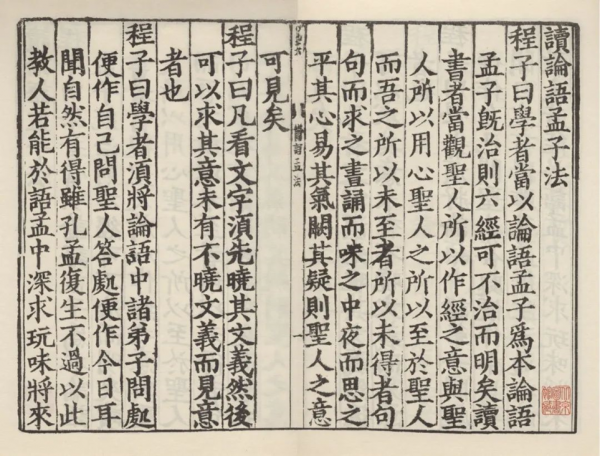 讀論語孟子法
程子曰學者當以論語孟子爲本論語
孟子旣治則六經可不治而明矣讀
書者當觀聖人所以作經之意與聖
人所以用心聖人之所以至於聖人
而吾之所以未至者所以未得者句
句而求之晝誦而味之中夜而思之
平其心易其氣闕其疑則聖人之意
可見矣
程子曰凡看文字湏先曉其文義然後
可以求其意未有不曉文義而見意
者也
程子曰學者湏將論語中諸弟子問處
便作自己問聖人答處便作今日耳
聞自然有得雖孔孟復生不過以此
教人若能於語孟中深求玩味將來